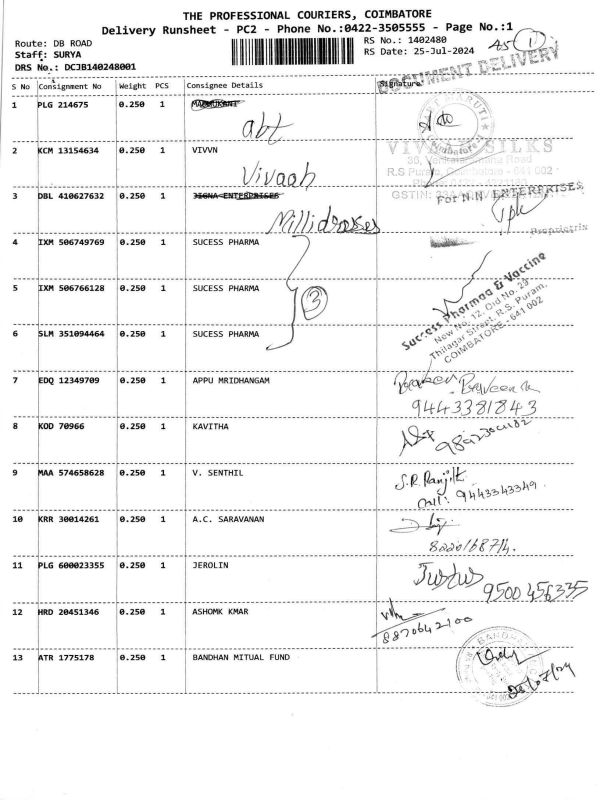 THE PROFESSIONAL COURIERS, COIMBATORE
Delivery Runsheet - PC2 - Phone No.:0422-3505555 - Page No.:1
Route: DB ROAD
Staff: SURYA
DRS No.: DCJB140248001
RS No.: 1402480
RS Date: 25-Jul-2024
45 1
DOCUMENT DELIVERY
S No Consignment No Weight PCS Consignee Details Signature
1 PLG 214675 0.250 1
abt
2 KCM 13154634 0.250 1 VIVVN
Vivaah
SILKS
36, Venkataramana Road
R.S Puram, Coimbatore - 641 002
GSTIN:
3 DBL 410627632 0.250 1 JIGNA ENTERPRISES
Millidresses
For N.N ENTERPRISES
Proprietrix
4 IXM 506749769 0.250 1 SUCESS PHARMA
5 IXM 506766128 0.250 1 SUCESS PHARMA
3
6 SLM 351094464 0.250 1 SUCESS PHARMA
Success Pharmaa & Vaccine
New No. 12, Old No. 23
Thilagar Street, R.S. Puram,
COIMBATORE - 641 002
7 EDQ 12349709 0.250 1 APPU MRIDHANGAM
Praveen
9443381843
8 KOD 70966 0.250 1 KAVITHA
9 MAA 574658628 0.250 1 V. SENTHIL
S.R. Ranjit
Cell: 9443343349
10 KRR 30014261 0.250 1 A.C. SARAVANAN
8220168714.
11 PLG 600023355 0.250 1 JEROLIN
Justus
9500456335
12 HRD 20451346 0.250 1 ASHOMK KMAR
8870642100
13 ATR 1775178 0.250 1 BANDHAN MITUAL FUND
BANDHAN